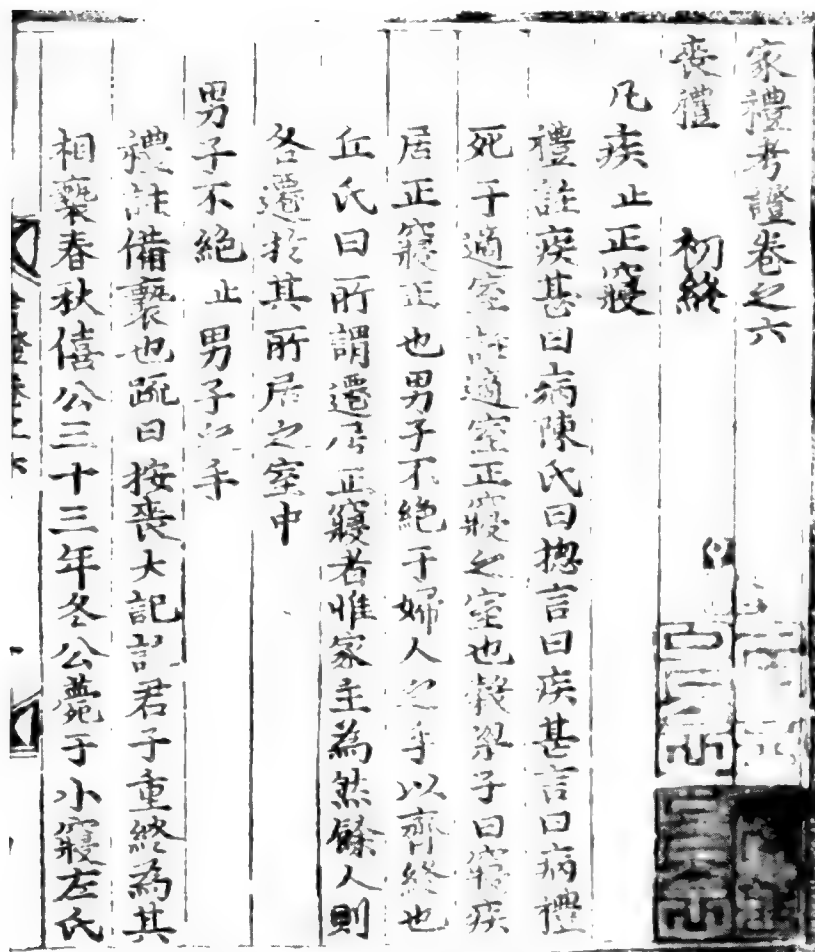 家禮考證卷之六
喪禮 初終
凡疾止正寢
禮註疾甚曰病陳氏曰揔言曰疾甚言曰病禮
死于適室註適室正寢之室也穀梁子曰寢疾
居正寢正也男子不絶于婦人之手以齊終也
丘氏曰所謂遷居正寢者惟家主為然餘人則
各遷於其所居之室中
男子不絶止男子以手
禮註備褻也疏曰按喪大記註君子重終為其
相褻春秋僖公三十三年冬公薨于小寢左氏